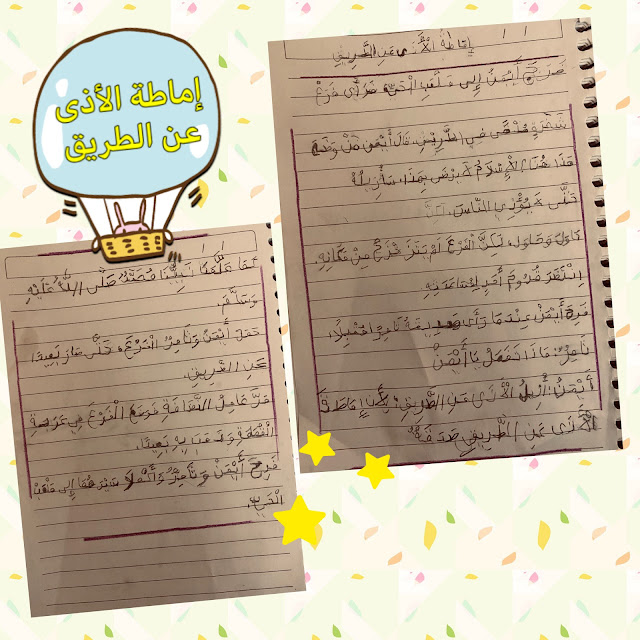 إماطة الأذى
عن الطريق
إماطة الأذى عن الطريق
خرج أيمن إلى ملعب الحي، فرأى فرع
شجرة ملقى في الطريق، قال أيمن: من وضع
هذا هنا الإسلام لا يرضى بهذا، سأزيله
حتى لا يؤذي الناس.
حاول وحاول، لكن الفرع لم من مكانه
انتظر قدوم أحد لمساعدته
فرح أيمن عندما رأى صديقه ثامر مقبلا،
ثامر: ماذا تفعل يا أيمن
أيمن: أزيل الأذى عن الطريق، لأن إماطة
الأذى عن الطريق صدقة
كما علمنا نبينا محمد صلى الله عليه
وسلم.
حمل أيمن وثامر الفرع، حتى صار بعيدا
عن الطريق.
مر عامل النظافة فوضع الفرع في عربة
وذهب به بعيدا.
فرح أيمن وثامر وأكملا سيرهما إلى ملعب
الحي.